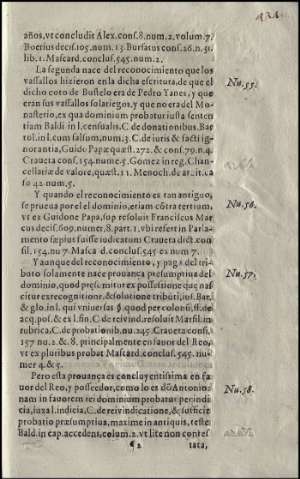 131.
años, vt concludit Alex. cons. 8. num. 2. volum. 7.
Boerius decis. 105. num. 13. Bursatus cons. 26. n. 31.
lib. 1. Mascard. conclus. 545. num. 2.
La segunda nace del reconocimiento que los
vassallos hizieron en la dicha escritura, de que el
dicho coto de Bustelo era de Pedro Yanes, y que
eran sus vassallos solariegos, y que no era del Mo-
nasterio, ex qua dominium probatur iusta senten
tiam Baldi in l. censualis. C. de donationibus. Bar
tol. in l. cum falsum, num. 3. C. de iuris & facti ig-
norantia, Guido Papæ quæst. 272. & cons. 79. n. 4.
Craueta cons. 154. nume. 5. Gomez in reg. Chan-
cellariæ de valore, quæst. 11. Menoch. de ar. it. ca
so 42. num. 5.
Nu. 55.
Y quando el reconocimiento es tan antiguo,
se prueua por el el dominio, etiam cōtra tertium,
vt ex Guidone Papa, sup. resoluit Franciscus Mar
cus decis. 609. numer. 8. part. 1. vbi refert in Parla-
mento sæpius fuisse iudicatum Craueta dict. con
sil. 154. nu. 7. Mascard. conclus. 545 ex num. 7.
Nu. 56.
Y aunque del reconocimiento, y paga del tri-
buto solamente nace prouança presumptiua del
dominio, quod præsumitur ex possessione quæ nas
citur ex recognitione, & solutione tributi, ius, Bar.
& glo. in l. qui vniuersas § quod per colonū, ff. de
acq. pos. & ex l. fin. C. de rei vind. resoluis Marsil. in
rubrica. C. de probationib. nu. 245. Craueta cons.
157 nu. 2. & 8. principalmente en fauor del Reo,
vt ex pluribus probat Mascard. conclus. 545. nu-
mer 4. & 5.
Nu. 57.
Pero esta prouança es concluyentissima en fa
uor del Reo, y posseedor, como lo es dō Antonio:
nam in fauorem rei dominium probatur per indi-
cia, iuxa l. indicia, C. de rei vindicatione, & sufficit
probatio præsumptiua, maxime in antiquis, teste
Bald. in cap. accedens, colum. 2. vt lite non contes
Nu. 58.
¶ 2
tata,